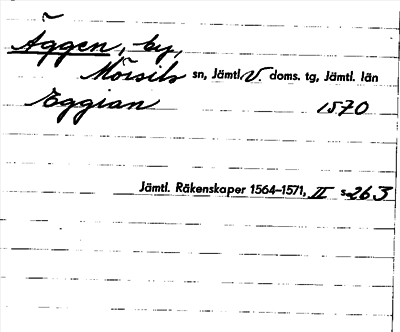 Äggen, by,
Mörsils sn, Jämtl. V. doms. tg, Jämtl. län
Eggian 1570
Jämtl. Räkenskaper 1564–1571, II s. 263